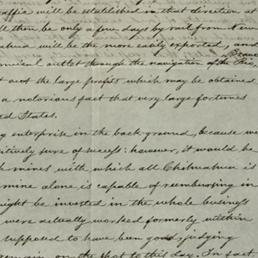 traffic will be established in that direction at
ll then be only a few days by rail from New
ahua will be the more easily exported, and
nomical outlet through the navigation of the
t out the large profit which may be obtained
a notorious fact that very large fortunes
ed States.
g enterprise in the back ground, because we
sitive sure of success: however, it would be
h mines with which all Chihuahua is
mine alone is capable of reembursing in
ight be invested in the whole business
were actually worked formerly within
supposed to have been good, judging
remain on the spot to this day. In fact